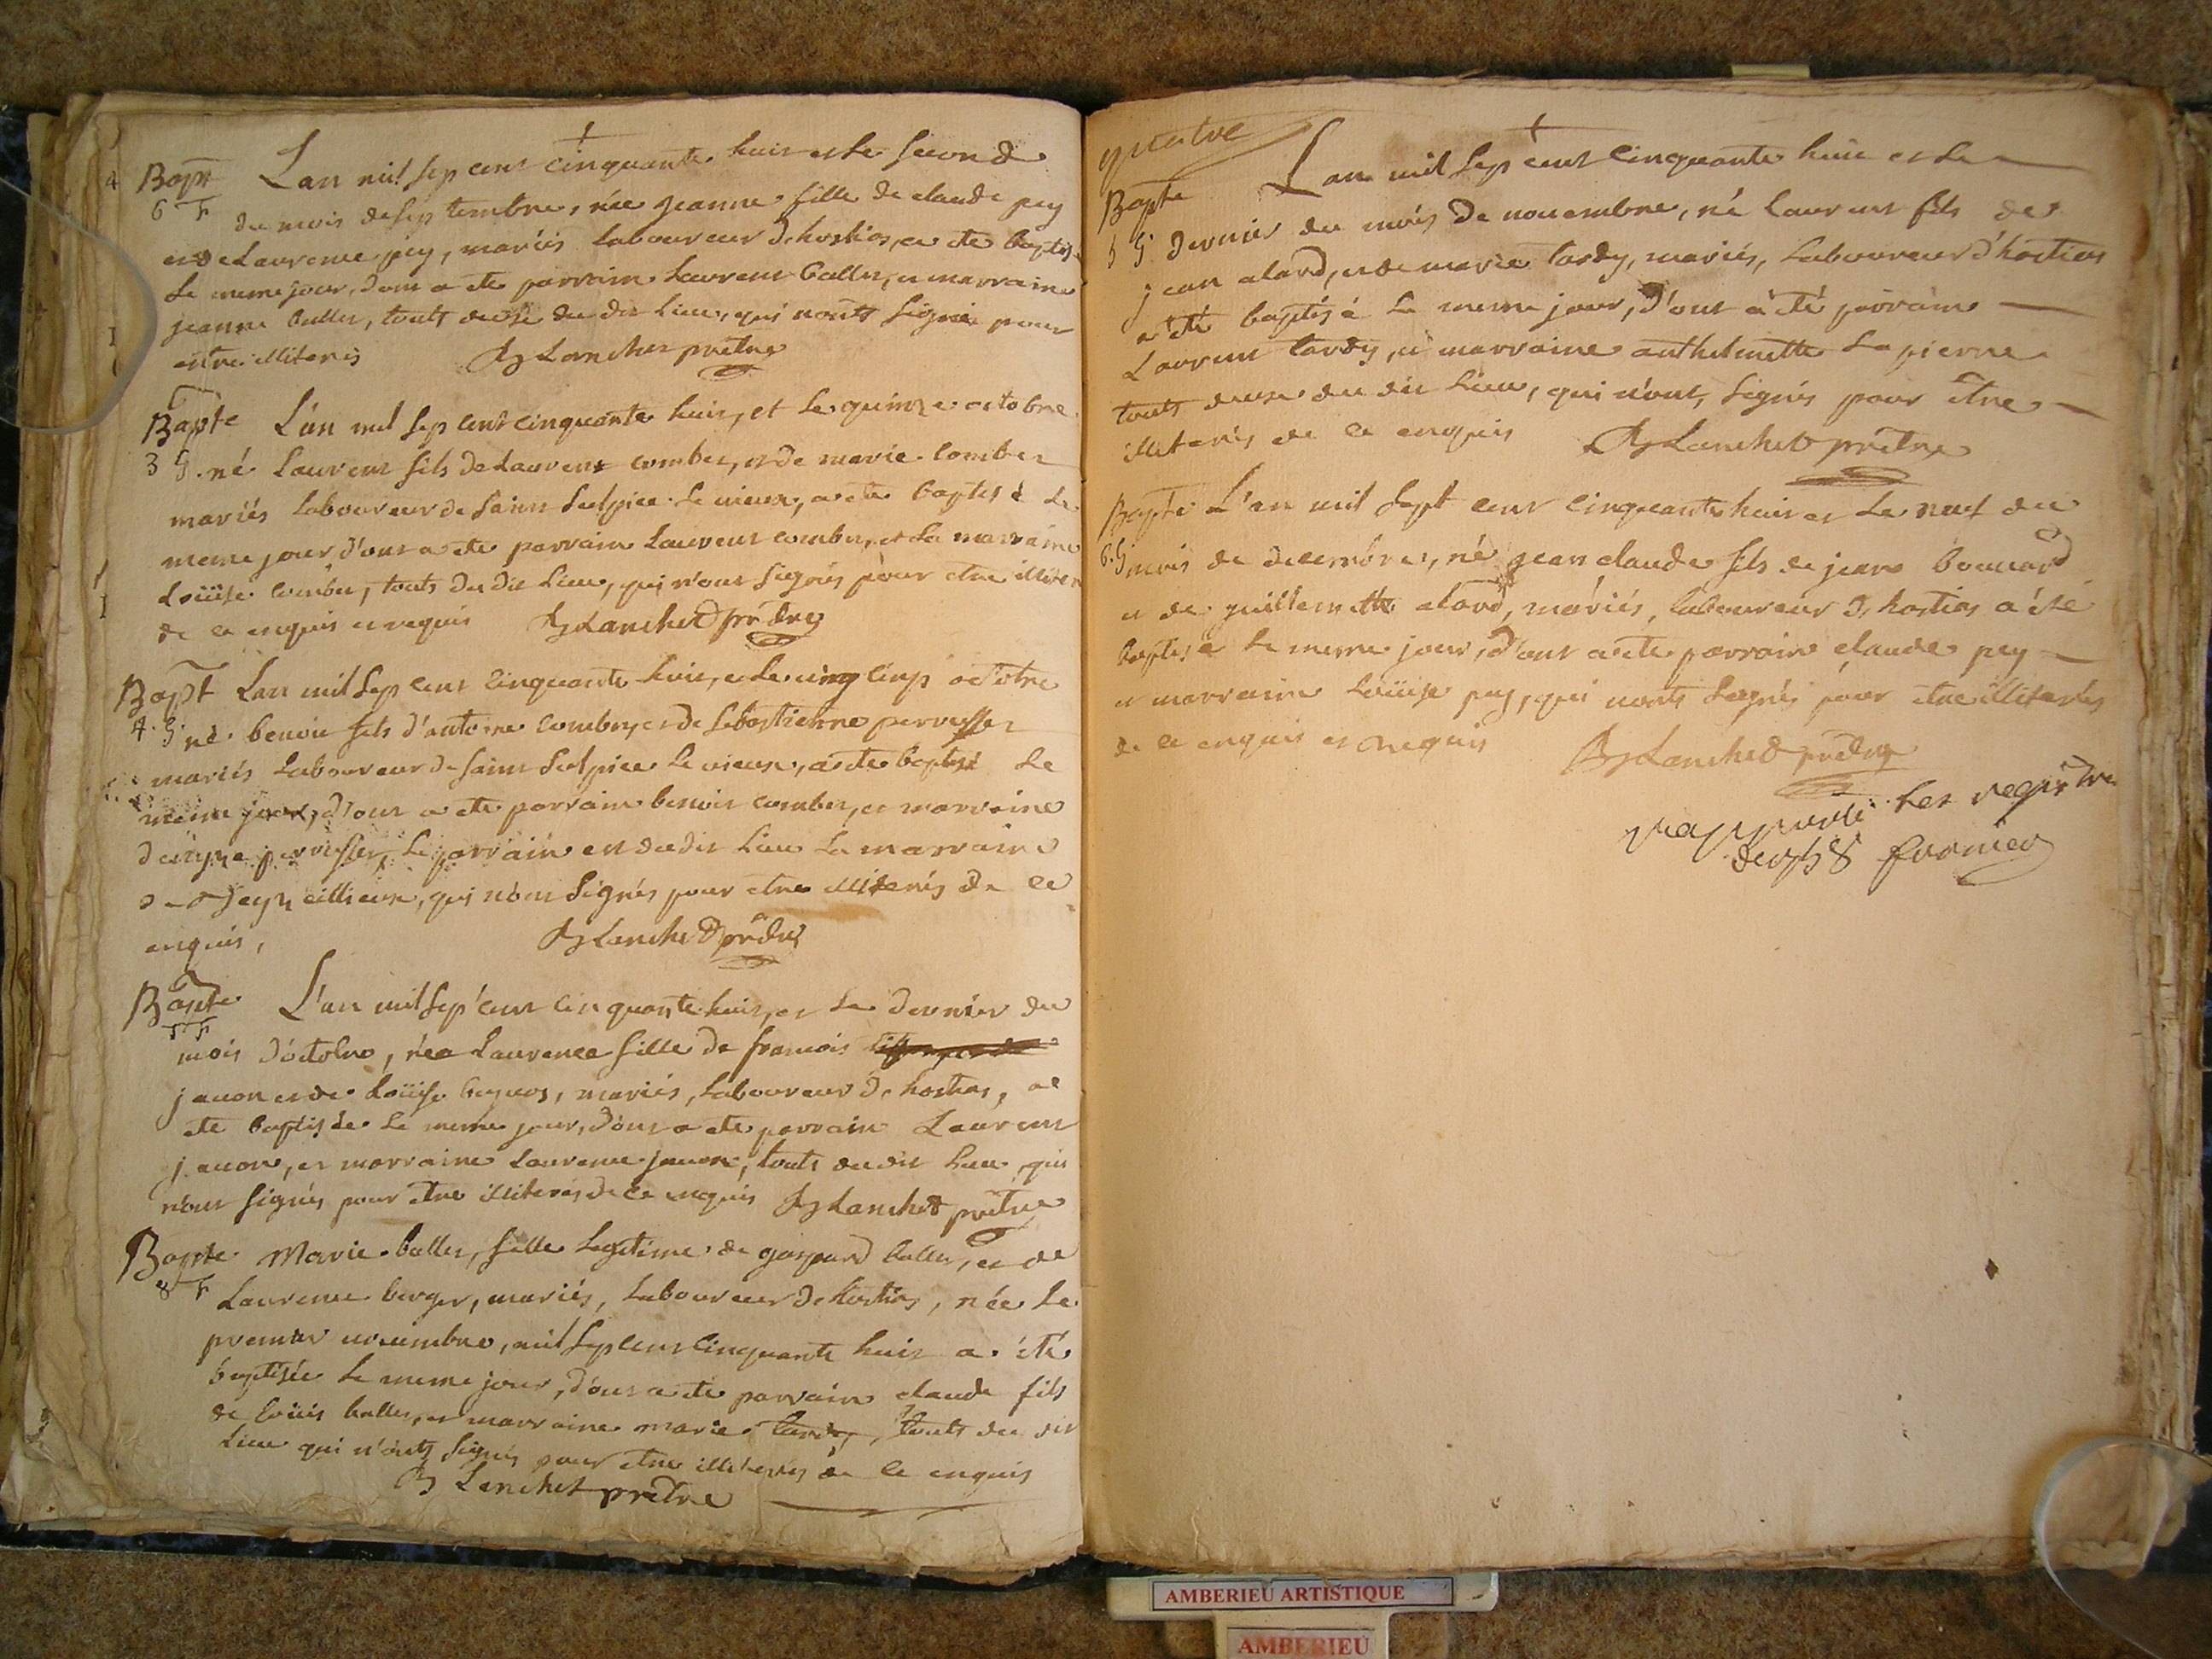 4
Bapt L'an mil sep cent cinquante huit et le second
6 F du mois de septembre, née jeanne fille de claude pey
et de Laurence pey, mariés laboureur d'hostias, a été baptisé
le meme jour, dont a été parrain Laurent ballet, et marraine
jeanne ballet, touts deux du dit lieu, qui n'onts signé pour
être illiterés B Lanchet prêtre
Bapte L'an mil sep cent cinquante huit, et le quinze octobre
3 G. né Laurent fils de Laurent combet, et de marie combet
mariés laboureur de saint sulpice le vieux, a été baptisé le
meme jour d'ont a été parrain Laurent combet, et la marraine
Loüise combet, touts du dit lieu, qui n'ont signés pour etre illiter
de ce enquis et requis B Lanchet prêtre
Bapt L'an mil sep cent cinquante huit, et le cinq octobre
4. G né benoit fils d'antoine combet, et de sebastienne
mariés laboureur de saint sulpice le vieux, a été baptisé le
meme jour, d'ont a été parrain benoit combet, et marraine
le parrain est du dit lieu la marraine
qui n'ont signés pour etre illiterés de ce
enquis, B Lanchet prêtre
Bapte L'an mil sep cent cinquante huit, et le dernier du
F mois d'octobre, née Laurence fille de francois
juuon et de Loüise mariés, laboureur d'hostias, a
été baptisée le meme jour, d'ont a été parrain Laurent
juuon, et marraine Laurence juuon, touts du dit lieu qui
n'ont signés pour être illiterés de ce enquis B Lanchet prêtre
Bapte Marie ballet, fille legitime de gaspard ballet, et de
8 F Laurence berger, mariés, laboureur d'hostias, née le
premier novembre, mil sep cent cinquante huit a été
baptisée le meme jour, d'ont a été parrain claude fils
de loüis ballet, et marraine marie tardy, touts du dit
lieu qui n'onts signés pour etre illiterés de ce enquis
B Lanchet prêtre
quatre
L'an mil sep cent cinquante huit et le
Bapte
5 G dernier du mois de novembre, né laurent fils de
jean alard, et de marie tardy, mariés, laboureur d'hostias
a été baptisé le meme jour, d'ont a été parrain
Laurent tardy, et marraine anthelmette Lapierre
touts deux du dit lieu, qui n'ont, signés pour être
illiterés de ce enquis B Lanchet prêtre
Bapte L'an mil sept cent cinquante huit et le neuf du
6. G mois de decembre, né jean claude fils de jean
et de guillemette alard, mariés, laboureur d'hostias a été
baptisé le meme jour, d'ont a été parrain claude pey
et marraine Loüise pey, qui n'onts signés pour etre illiterés
de ce enquis et requis B Lanchet prêtre
rapporté les registre
de 1758
AMBERIEU ARTISTIQUE
AMBERIEU